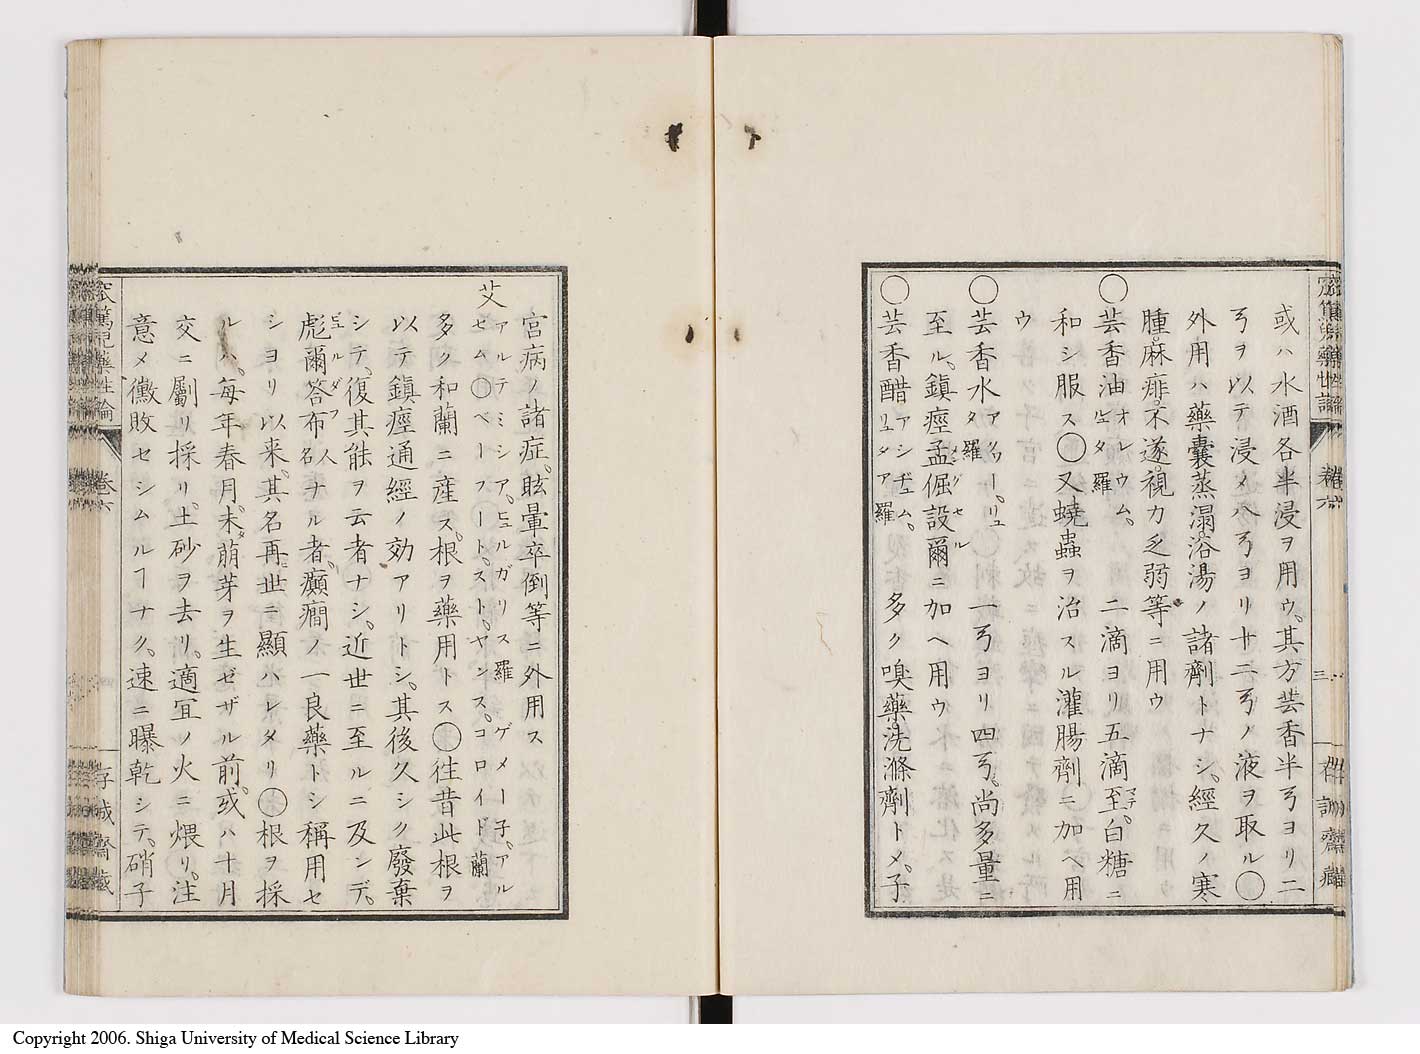 或ハ水酒各半浸ヲ用ウ、其方芸香半弓ヨリ二
弓ヲ以テ浸メヘ弓ヨリ廿二弓ノ液ヲ取ル○
外用ハ藥囊蒸溻浴湯ノ諸劑トナシ、經久ノ寒
腫、麻痺、不遂、視力乏弱等ニ用ウ
○芸香油 オレウム、リュタ 羅 二滴ヨリ五滴至マデ、白糖ニ
和シ服ス○又蟯蟲ヲ治スル灌腸劑ニ加ヘ用
ウ
○芸香水 アクワー、リュタ 羅 一弓ヨリ四弓、尚多量ニ
至ル、鎮痙孟倔設爾メングセルニ加ヘ用ウ
○芸香醋 アシデュム、リュタア 羅 多ク嗅藥、洗滌劑トメ、子
三
宮病ノ諸症、眩暈卒倒等ニ外用ス
艾 アルテミシア、ヒュルガリス 羅 ゲメー子、アルセム○ベーフート、スト、ヤンス、コロイド 蘭
多ク和蘭ニ産ス、根ヲ藥用トス○往昔此根ヲ
以テ鎮痙通經ノ効アリトシ、其後久シク廢棄
シテ、復其能ヲ云者ナシ、近世ニ至ルニ及ンデ、
彪爾答布ヒュルダフ人名ナル者、癲癇ノ一良藥トシ稱用セ
シヨリ以来、其名再ヒ世ニ顯ハレタリ○根ヲ採
ルハ、毎年春月、未タ萠芽ヲ生ゼザル前、或ハ十月
交ニ劚リ採リ、土砂ヲ去リ、適宜ノ火ニ煨リ、注
意メ黴敗セシムルヿナク、速ニ曝乾シテ、硝子
窊篤兒藥性論 卷六
存誠齋藏
Copyright 2006. Shiga University of Medical Science Library